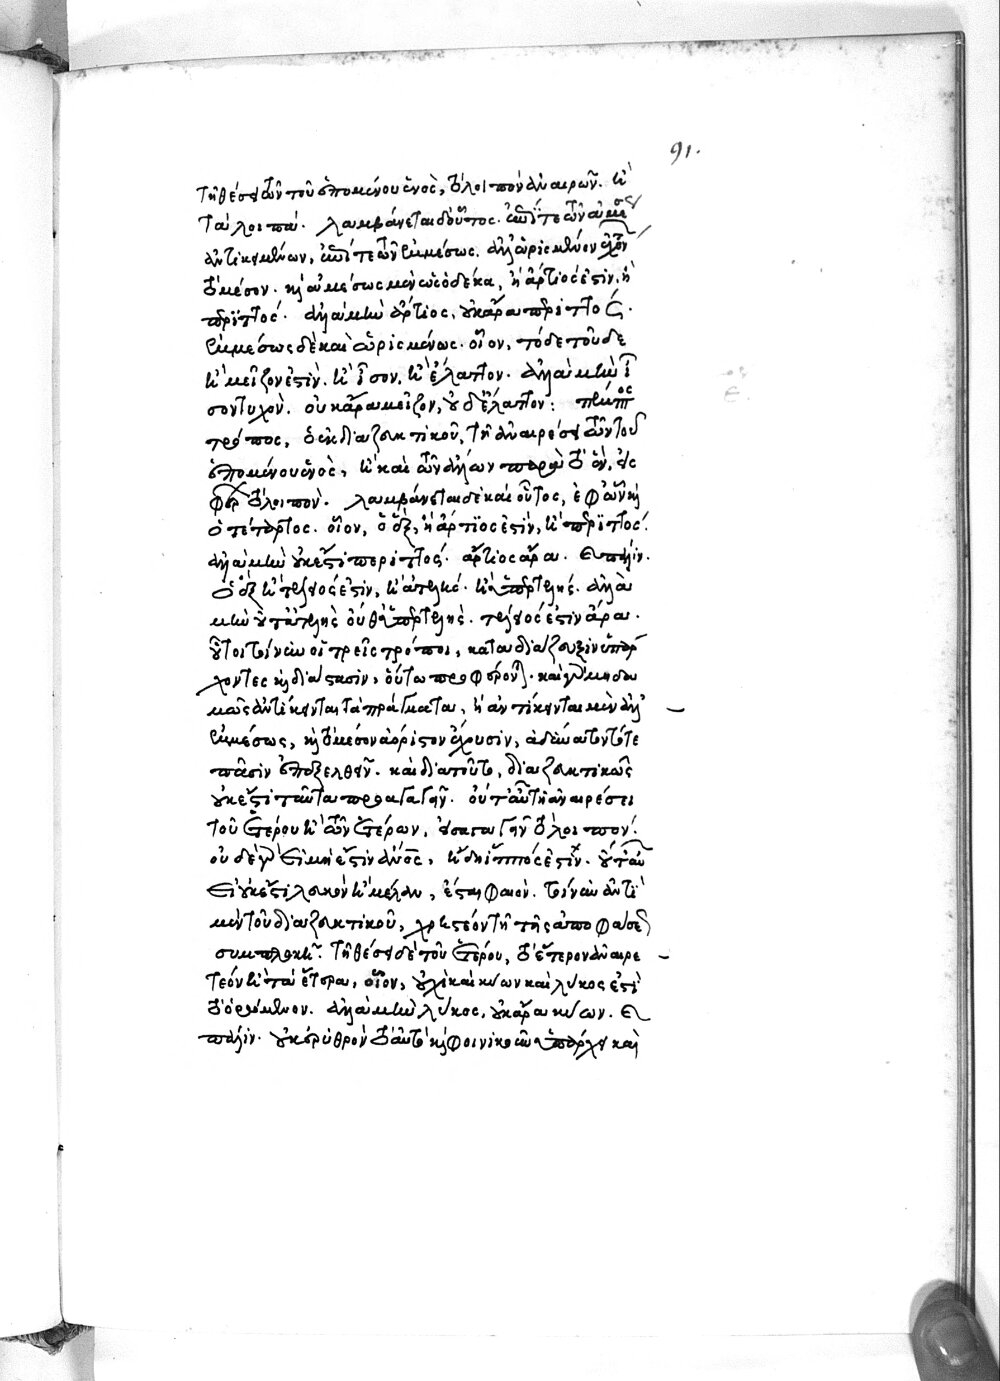 91.
τῇ θέσει τῶν τοῦ ἑπομένου ἑνὸς, τὸ λοιπὸν ἀναιρῶν. ἢ
τὰ λοιπά. λαμβάνεται δὲ οὗτος. ἐπί τε τῶν ἀμέσως
ἀντικειμένων, ἐπί τε τῶν ἐμμέσως. ἀλλὰ ὡρισμένον ἐχόντων
τὸ μέσον. καὶ ἀμέσως μὲν ὡς ὁ δέκα, ἢ ἄρτιός ἐστιν, ἢ
περιττός. ἀλλὰ μὴν ἄρτιος, οὐκ ἄρα περιττός.
ἐμμέσως δὲ καὶ ὡρισμένως. οἷον, τόδε τοῦδε
ἢ μεῖζον ἐστὶν. ἢ ἴσον, ἢ ἔλαττον. ἀλλὰ μὴν ἴ
σον τυχὸν. οὐκ ἄρα μεῖζον, οὐδὲ ἔλαττον: πέμπτος
τρόπος, ὁ ἐκ διαζευκτικοῦ, τῇ ἀναιρέσει τῶν τοῦ
ἑπομένου ἑνὸς, ἢ καὶ τῶν ἄλλων παρὰ τὸ ἓν, εἰσ
φέρων τὸ λοιπὸν. λαμβάνεται δὲ καὶ οὗτος, ἐφ' ὧν καὶ
ὁ τέταρτος. οἷον, ὁ ἓξ, ἢ ἄρτιος ἐστὶν, ἢ περιττός.
ἀλλὰ μὴν οὐκ ἔστι περιττός. ἄρτιος ἄρα. καὶ πάλιν.
ὁ ἓξ ἢ τέλειός ἐστιν, ἢ ἀτελής. ἢ ὑπερτελής. ἀλλὰ
μὴν οὔτ' ἀτελὴς οὐθ' ὑπερτελὴς. τέλειός ἐστιν ἄρα.
οὗτοι τοίνυν οἱ τρεῖς τρόποι, κατὰ διάζευξιν ὑπάρ
χοντες καὶ διάστασιν, οὕτω προφέρονται.
μῶς ἀντίκεινται τὰ πράγματα, ἢ ἀντίκεινται μὲν ἀλλ'
ἐμμέσως, καὶ τὸ μέσον ἀόριστον ἔχουσιν,
πᾶσιν ἐπεξελθεῖν. καὶ διὰ τοῦτο, διαζευκτικῶς
οὐκ ἔστι ταῦτα προαγαγεῖν. οὔτ' αὖ τῇ ἀναιρέσει
τοῦ ἑτέρου ἢ τῶν ἑτέρων, εἰσαγαγεῖν τὸ λοιπόν.
οὐδὲ γὰρ εἰ μή ἐστιν ἄνθρωπος, ἤδη ἵππός ἐστιν. οὔτ' αὖ
εἰ οὐκ ἔστι λευκὸν ἢ μέλαν, ἔσται φαιόν. τοίνυν ἀντὶ
μὲν τοῦ διαζευκτικοῦ, χρηστέον τῇ τῆς ἀποφάσεως
συμπλοκῇ. τῇ θέσει δὲ τοῦ ἑτέρου, τὸ ἕτερον ἀναιρε
τέον ἢ τὰ ἕτερα, οἷον, οὐχὶ καὶ κύων καὶ λύκος ἐστὶ
τὸ ὁρώμενον. ἀλλὰ μὴν λύκος, οὐκ ἄρα κύων. καὶ
πάλιν. οὐκ ἐρυθρὸν τὸ αὐτὸ καὶ φοινικοῦν ὑπάρχει καὶ